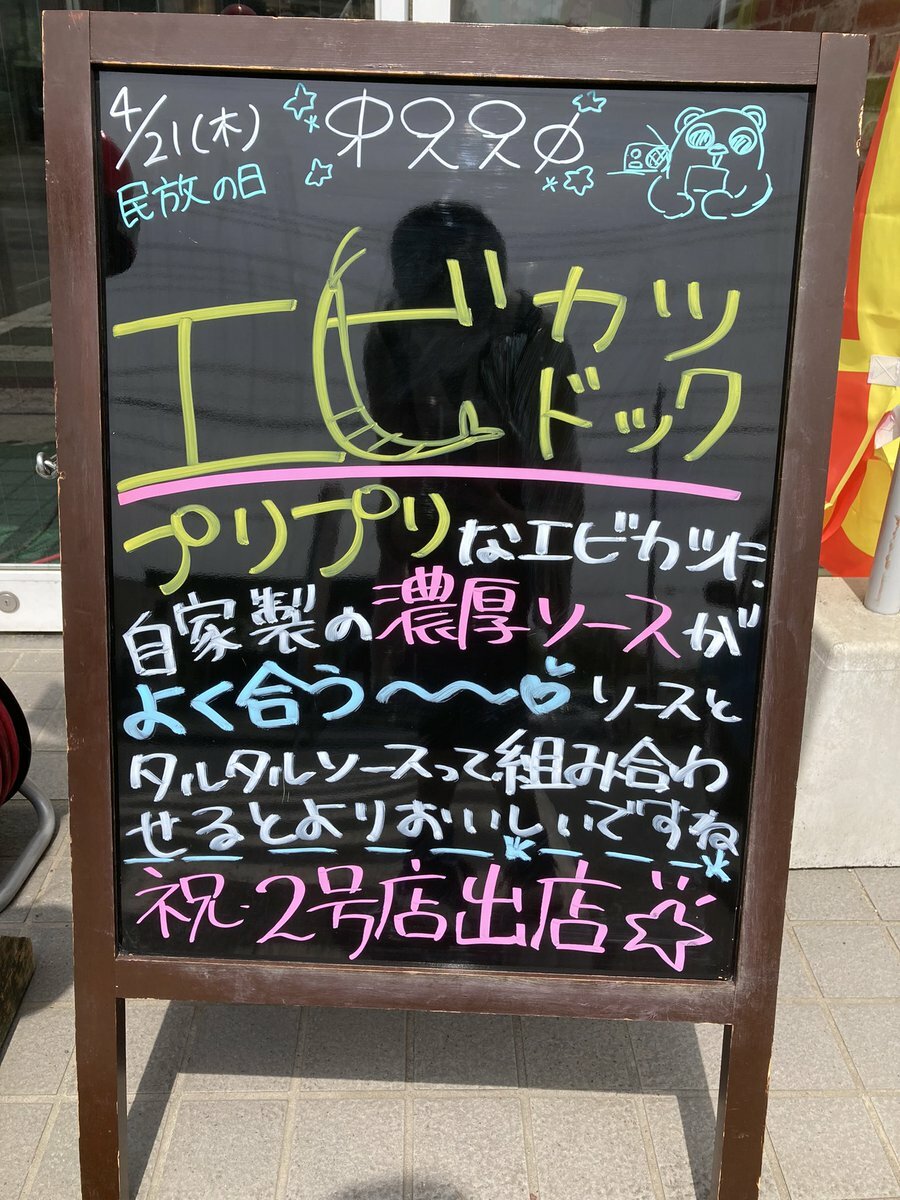 4/21(木)
オススメ
民放の日
エビカツ
ドック
プリプリなエビカツに、
自家製の濃厚ソースが
よく合う〜〜〜♡ ソースと
タルタルソースって組み合わ
せるとよりおいしいですね
祝・2号店出店☆